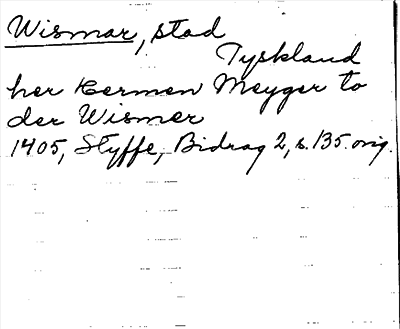 Wismar, stad
Tyskland
her Hermen Meyger to
der Wismer
1405, Styffe, Bidrag 2, s. 135. orig.